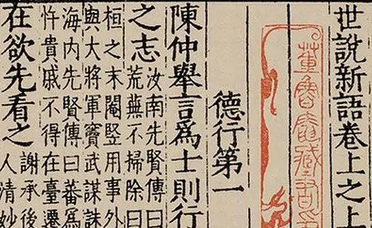 世說新語卷上之上
德行第一
陳仲舉言爲士則行
之志
汝南先賢傳曰
荒蕪不掃除曰
桓之末閹豎用事外
與大將軍竇武謀誅
海內先賢傳曰蕃爲
忤貴戚不得在臺遷
在欲先看之
謝承後
人清妙